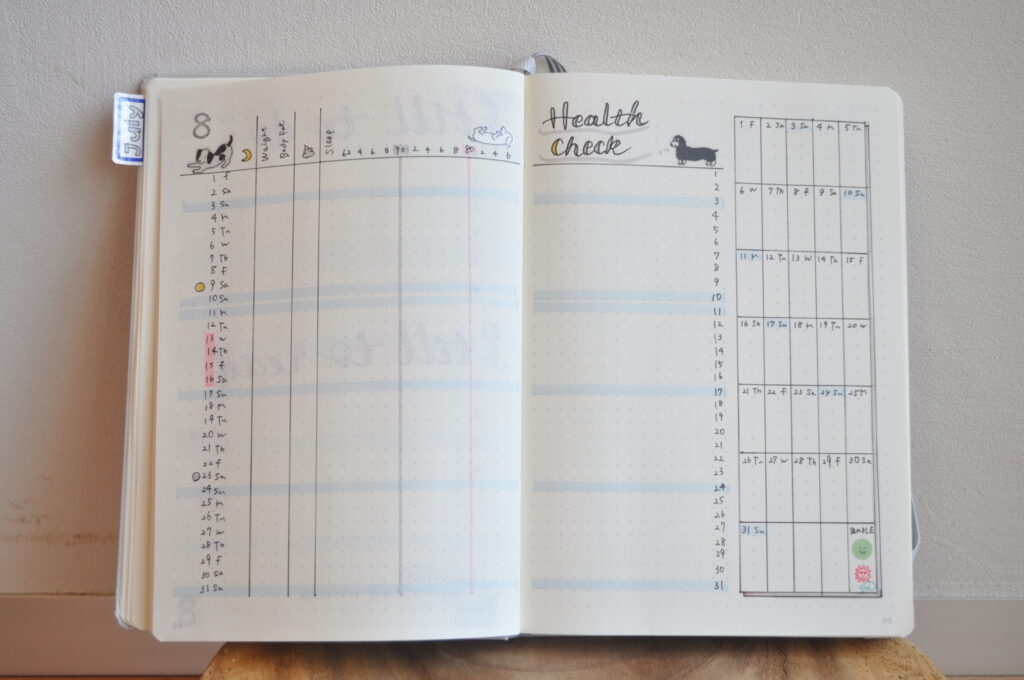 July
8
Weight
Body Fat
Sleep
62 4 6 8 90 2 4 6 8 80 2 4 6
1 F
2 Sa
3 Su
4 M
5 Tu
6 W
7 Th
8 F
9 Sa
10 Su
11 M
12 Tu
13 W
14 Th
15 F
16 Sa
17 Su
18 M
19 Tu
20 W
21 Th
22 F
23 Sa
24 Su
25 M
26 Tu
27 W
28 Th
29 F
30 Sa
31 Su
24
Health
Check
1
2
3
4
5
6
7
8
9
10
11
12
13
14
15
16
17
18
19
20
21
22
23
24
25
26
27
28
29
30
31
1 F 2 Sa 3 Su 4 M 5 Tu
6 W 7 Th 8 F 9 Sa 10 Su
11 M 12 Tu 13 W 14 Th 15 F
16 Sa 17 Su 18 M 19 Tu 20 W
21 Th 22 F 23 Sa 24 Su 25 M
26 Tu 27 W 28 Th 29 F 30 Sa
31 Su SAMPLE
25